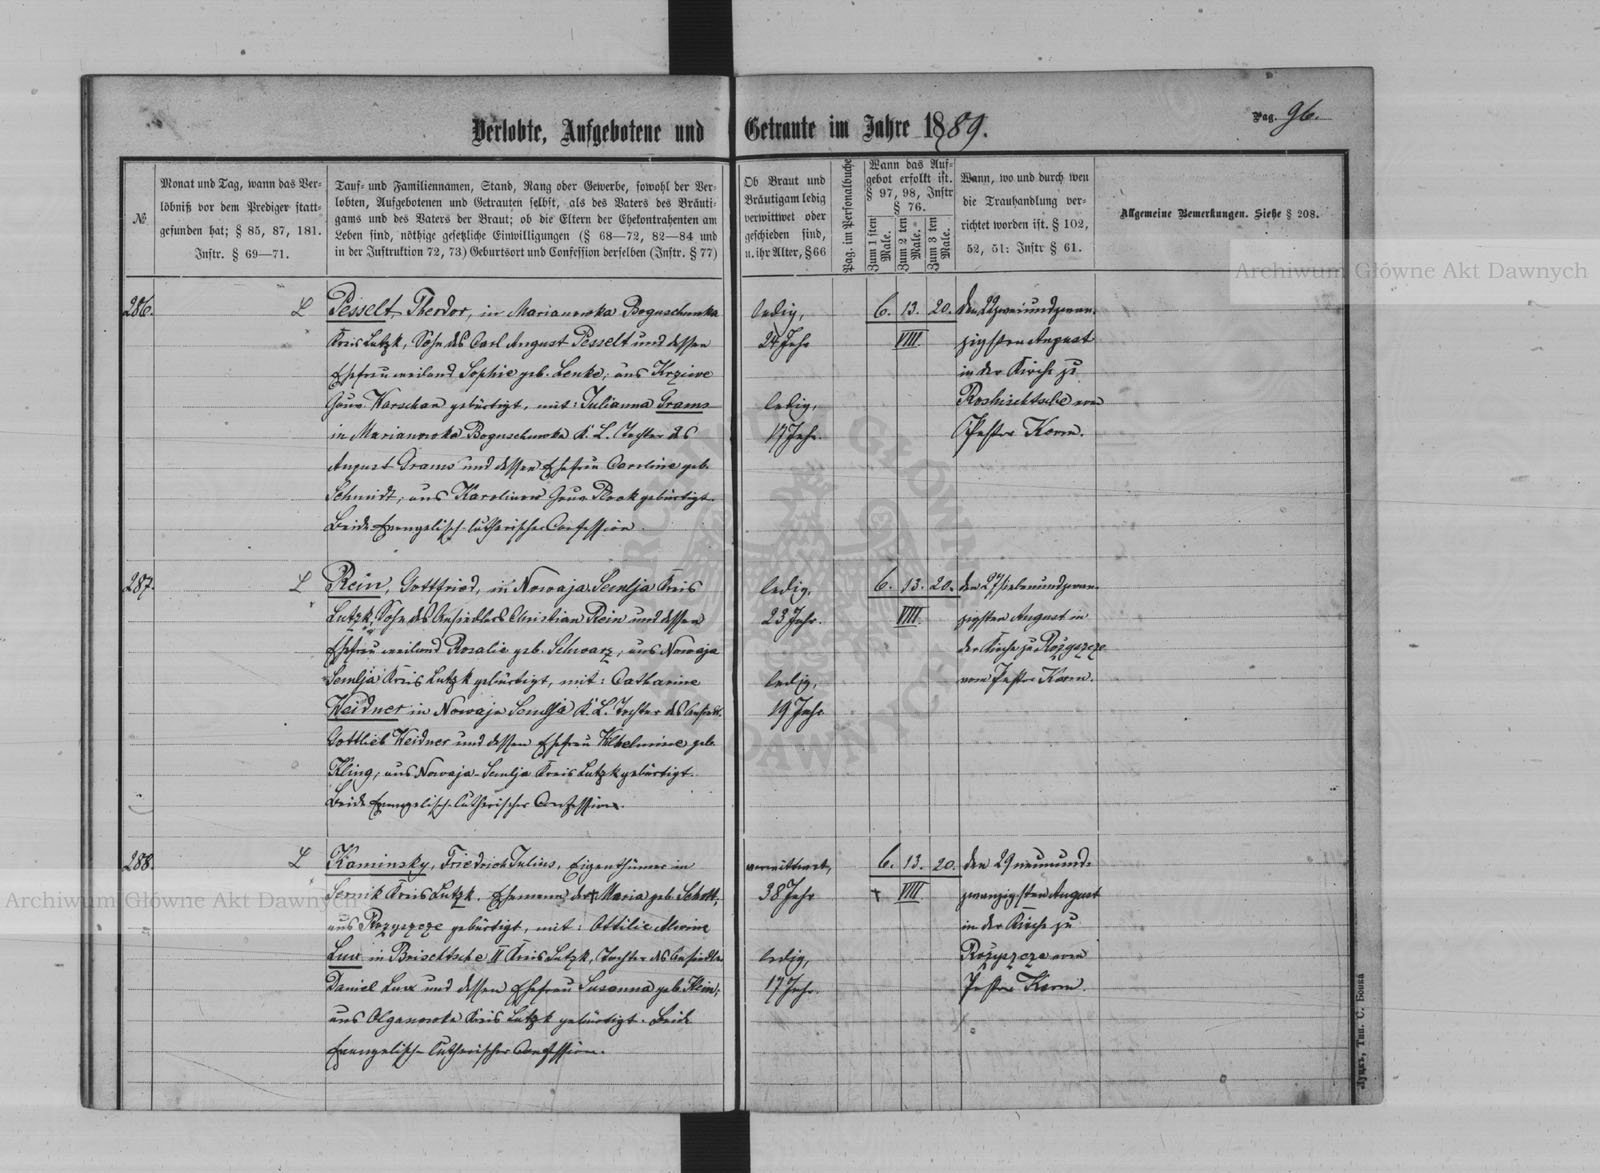 Pag. 96.
Verlobte, Aufgebotene und Getraute im Jahre 1889.
№
Monat und Tag, wann das Ver-
löbniß vor dem Prediger statt-
gefunden hat; § 85, 87, 181.
Instr. § 69—71.
Tauf- und Familiennamen, Stand, Rang oder Gewerbe, sowohl der Ver-
lobten, Aufgebotenen und Getrauten selbst, als des Vaters des Bräuti-
gams und des Vaters der Braut; ob die Eltern der Ehekontrahenten am
Leben sind, nöthige gesetzliche Einwilligungen (§ 68—72, 82—84 und
in der Instruktion 72, 73) Geburtsort und Confession derselben (Instr. § 77)
Ob Braut und
Bräutigam ledig
verwittwet oder
geschieden sind,
u. ihr Alter, § 66
Pag. im Personalbuche
Wann das Auf-
gebot erfolkt ist.
§ 97, 98, Instr
§ 76.
Zum 1 sten Male.
Zum 2 ten Male.
Zum 3 ten Male.
Wann, wo und durch wen
die Trauhandlung ver-
richtet worden ist. § 102,
52, 51: Instr § 61.
Allgemeine Bemerkungen. Siehe § 208.
Archiwum Główne Akt Dawnych
286.
L
Pesselt Theodor, in Marianowka Boguschuwka
Kreis Lutzk, Sohn des Carl August Pesselt und dessen
Ehefrau weiland Sophie geb. Lenke; aus Krziwe
Gouv. Warschau gebürtigt, mit: Julianna Grams
in Marianowka Boguschuwka K. L. Tochter des
August Grams und dessen Ehefrau Caroline geb.
Schmidt, aus Karolinow Gouv Plock gebürtigt.
Beide Evangelisch-lutherischer Confession.
ledig,
24 Jahr
ledig,
17 Jahr.
6. 13. 20.
VIII
den 22 zweiundzwan-
zigsten August
in der Kirche zu
Roshischtsche von
Pastor Kern.
287.
L
Rein, Gottfried, in Nowaja Semlja Kreis
Lutzk, Sohn des Ansiedlers Christian Rein und dessen
Ehefrau weiland Rosalie geb. Schwarz, aus Nowaja
Semlja Kreis Lutzk gebürtigt, mit: Catharine
Weidner in Nowaja Semlja K. L. Tochter des Ansiedl.
Gottlieb Weidner und dessen Ehefrau Wilhelmine geb.
Kling, aus Nowaja-Semlja Kreis Lutzk gebürtigt.
Beide Evangelisch-lutherischer Confession.
ledig,
23 Jahr.
ledig,
19 Jahr
6. 13. 20.
VIII
den 27 siebenundzwan-
zigsten August in
der Kirche zu Rożyszcze
vom Pastor Kern.
288.
L
Kaminsky, Friedrich Julius, Eigenthümer in
Sernik Kreis Lutzk. Ehemann der Maria geb. Schott,
aus Rożyszcze gebürtigt, mit: Ottilie Alwine
Lux in Brischtsche II Kreis Lutzk, Tochter des Ansiedlers
Daniel Lux und dessen Ehefrau Susanna geb. Klein,
aus Olganowka Kreis Lutzk gebürtigt. Beide
Evangelisch-lutherischer Confession.
verwittwet,
38 Jahr
ledig,
17 Jahr.
6. 13. 20.
VIII
den 29 neunund-
zwanzigsten August
in der Kirche zu
Rożyszcze von
Pastor Kern.
Archiwum Główne Akt Dawnych
ARCHIWUM GŁÓWNE AKT DAWNYCH
Луцкъ, Тип. С. Бокса